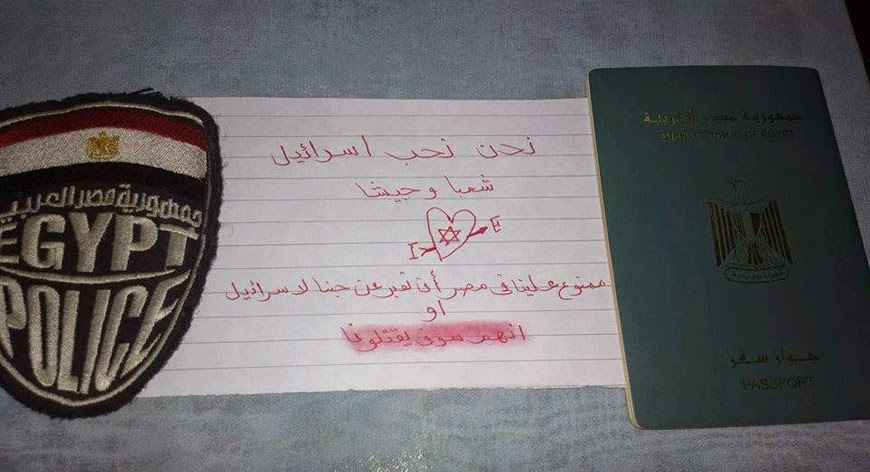 جمهورية مصر العربية
EGYPT
POLICE
نحن نحب اسرائيل
شعبا وجيشا
I E
ممنوع علينا في مصر أن نعبر عن حبنا لاسرائيل
او
انهم سوف يقتلونا
جمهورية مصر العربية
ARAB REPUBLIC OF EGYPT
جواز سفر
PASSPORT